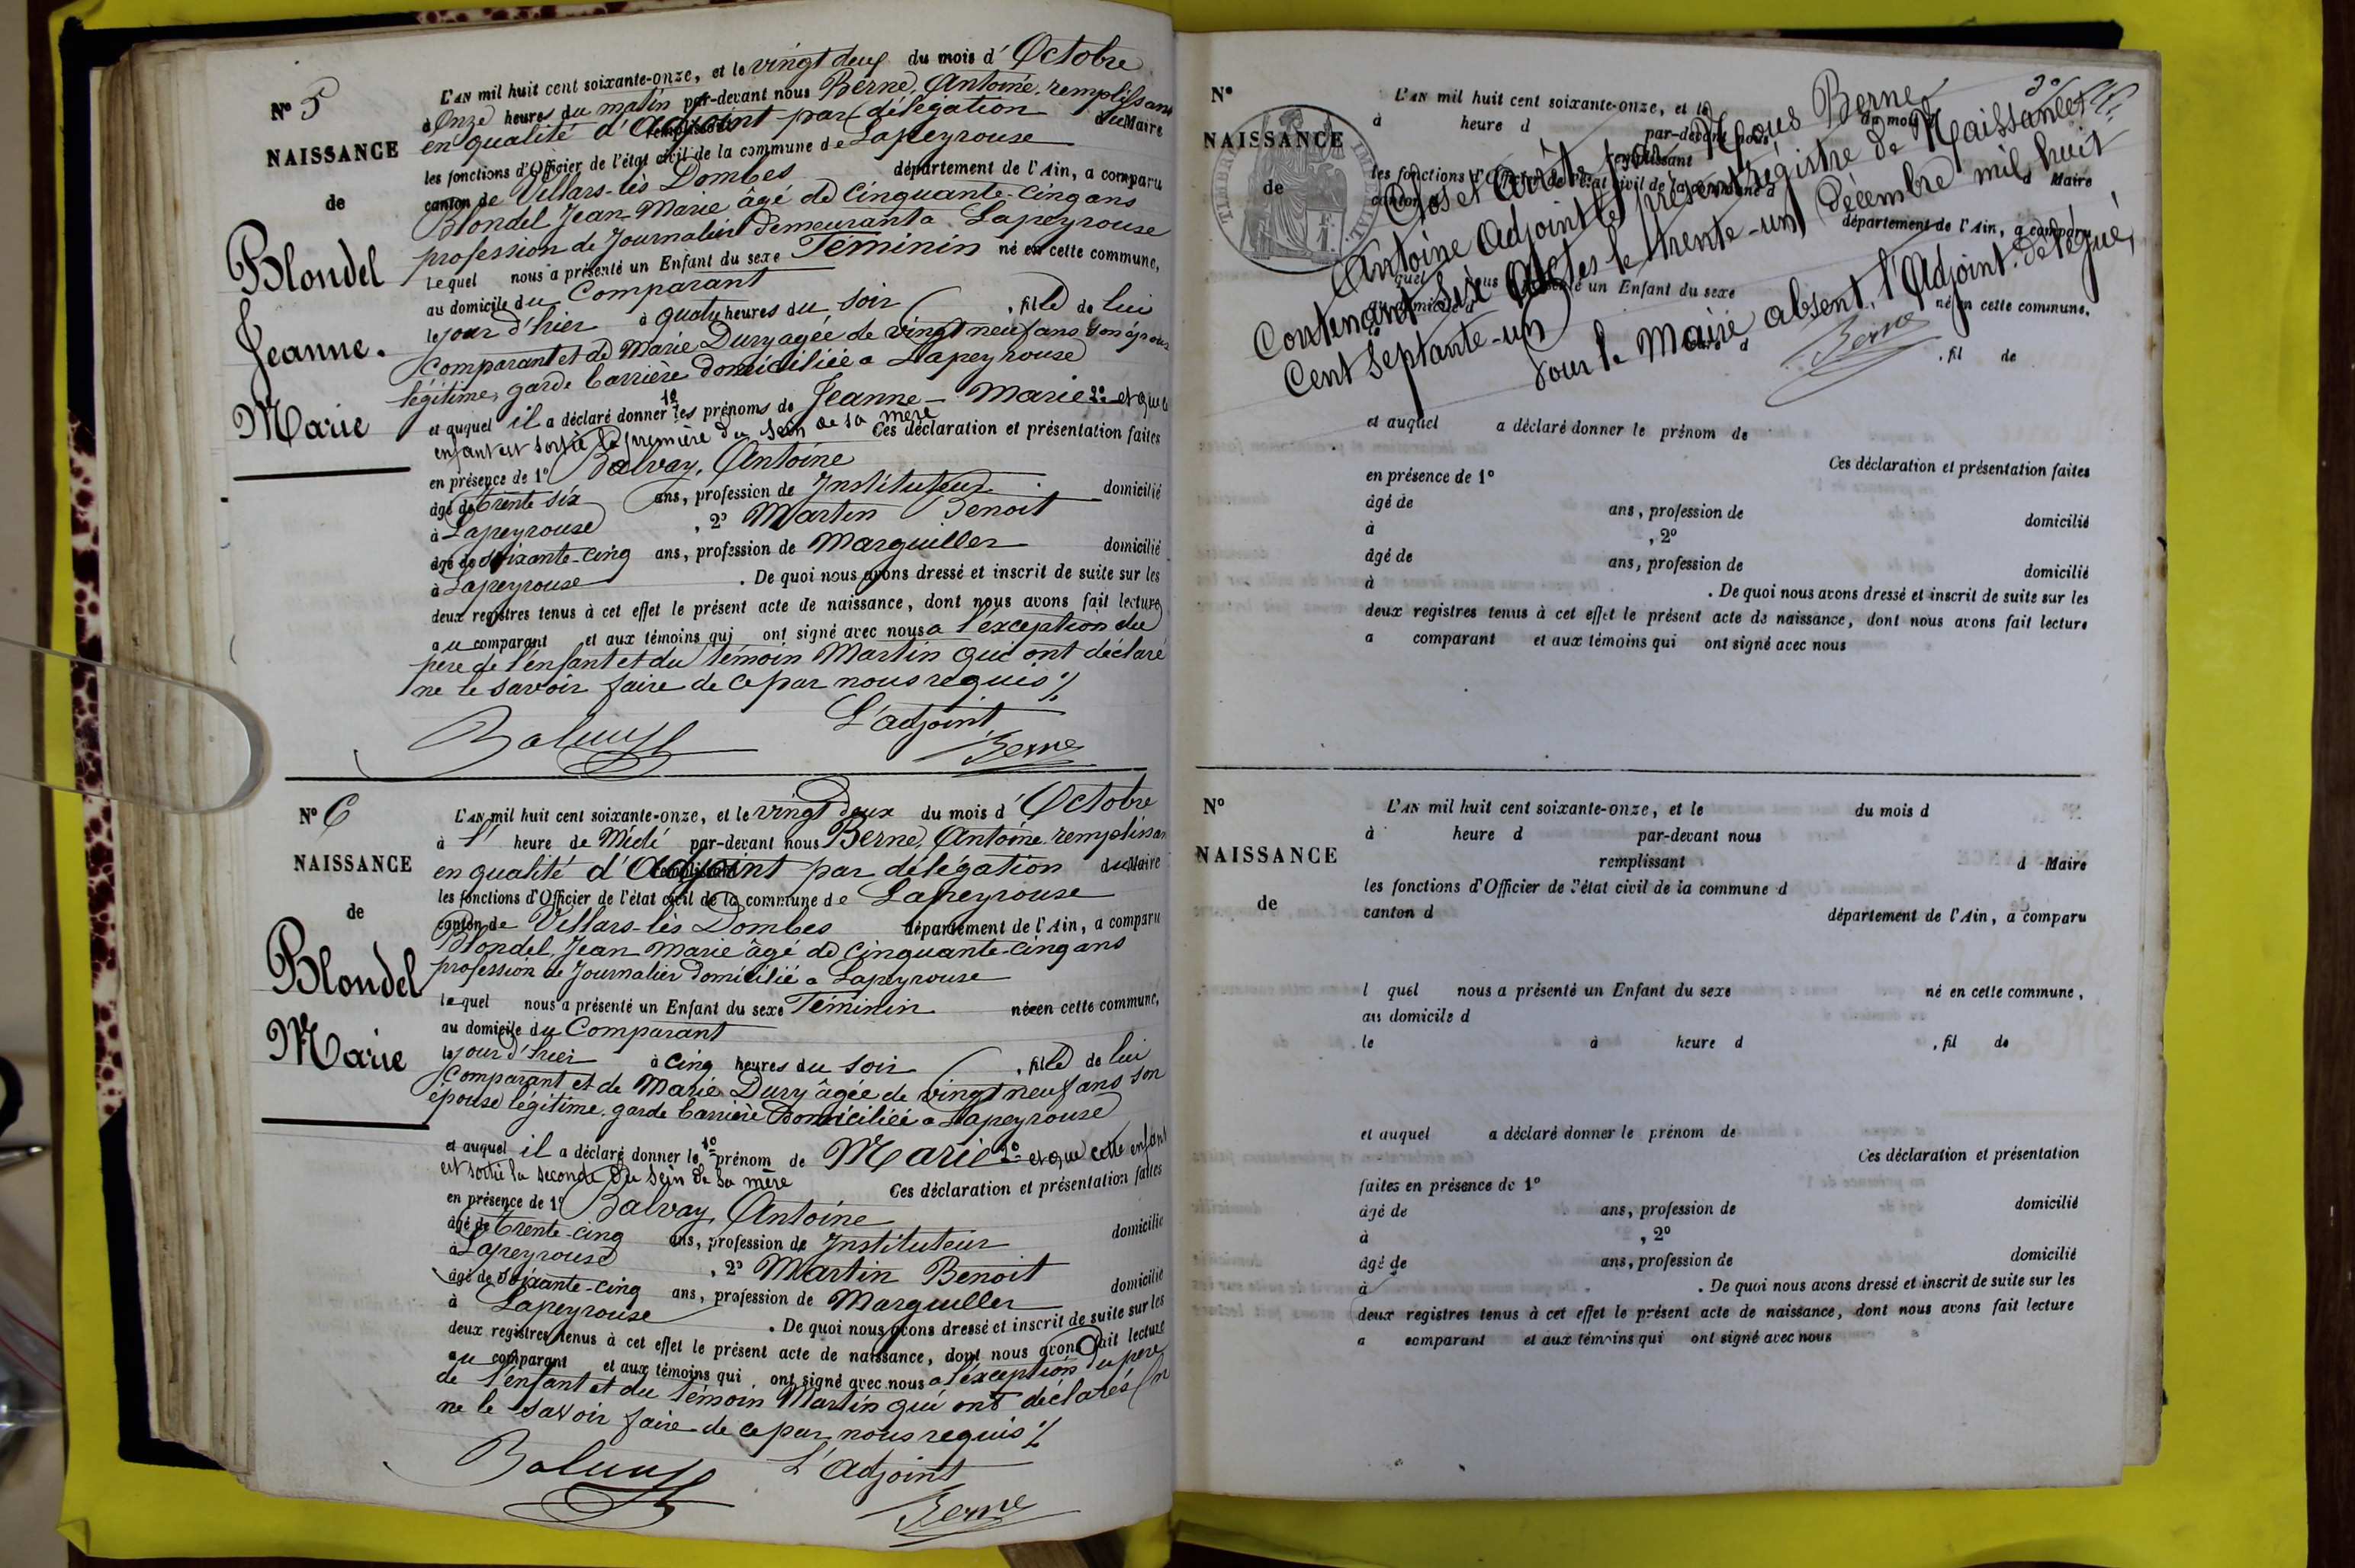 N° 5
NAISSANCE
de
Blondel
Jeanne.
Marie
L'AN mil huit cent soixante-onze, et le vingt deux du mois d'Octobre
à Onze heures du matin par-devant nous Berne, Antoine, remplissant
en qualité d'Adjoint par délégation du Maire
les fonctions d'Officier de l'état civil de la commune de Lapeyrouse
canton de Villars-lès Dombes département de l'Ain, a comparu
Blondel Jean-Marie âgé de Cinquante-cinq ans
profession de Journalier demeurant a Lapeyrouse
lequel nous a présenté un Enfant du sexe Féminin né en cette commune,
au domicile du Comparant
le jour d'hier à quatre heures du soir, fille de lui
Comparant et de Marie Dury agée de vingt neuf ans son épouse
légitime, garde barrière domiciliée a Lapeyrouse
et auquel il a déclaré donner 1° les prénoms de Jeanne-Marie 2° et que
enfant est sortie la première du sein de sa mère Ces déclaration et présentation faites
en présence de 1° Balvay, Antoine
âgé de trente six ans, profession de Instituteur domicilié
à Lapeyrouse, 2° Martin Benoit
âgé de soixante-cinq ans, profession de Marguiller domicilié
à Lapeyrouse. De quoi nous avons dressé et inscrit de suite sur les
deux registres tenus à cet effet le présent acte de naissance, dont nous avons fait lecture
au comparant et aux témoins qui ont signé avec nous a l'exception du
père de l'enfant et du témoin Martin qui ont déclaré
ne le savoir faire de ce par nous requis
Balvay
L'adjoint
Berne
N° 6
NAISSANCE
de
Blondel
Marie
L'AN mil huit cent soixante-onze, et le vingt deux du mois d'Octobre
à l' heure de Midi par-devant nous Berne, Antoine remplissan
en qualité d'Adjoint par délégation du Maire
les fonctions d'Officier de l'état civil de la commune de Lapeyrouse
canton de Villars-lès Dombes département de l'Ain, a comparu
Blondel, Jean Marie âgé de Cinquante-cinq ans
profession de Journalier domicilié a Lapeyrouse
lequel nous a présenté un Enfant du sexe Féminin née en cette commune,
au domicile du Comparant
le jour d'hier à cinq heures du soir, fille de lui
Comparant et de Marie Dury âgée de vingt neuf ans son
épouse légitime, garde barrière Domiciliée a Lapeyrouse
et auquel il a déclaré donner le 1° prénom de Marie 2° et que cette enfant
est sortie la seconde du sein de sa mère Ces déclaration et présentation faites
en présence de 1° Balvay, Antoine
âgé de trente-cinq ans, profession de Instituteur domicilié
à Lapeyrouse, 2° Martin Benoit
âgé de soixante-cinq ans, profession de Marguiller domicilié
à Lapeyrouse. De quoi nous avons dressé et inscrit de suite sur les
deux registres tenus à cet effet le présent acte de naissance, dont nous avons fait lecture
au comparant et aux témoins qui ont signé avec nous a l'exception du père
de l'enfant et du témoin Martin qui ont déclarés
ne le savoir faire de ce par nous requis
Balvay
L'adjoint
Berne
N°
NAISSANCE
de
L'AN mil huit cent soixante-onze, et le du mois
à heure d par-devant nous
remplissant d Maire
les fonctions d'Officier de l'état civil de la commune d
canton d département de l'Ain, a comparu
Clos et arrêté par Nous Berne
Antoine Adjoint le présent registre de Naissances
Contenant Six Actes le trente-un Décembre mil huit
Cent Septante-un
Pour le Maire absent, l'Adjoint délégué,
Berne
quel nous a présenté un Enfant du sexe né en cette commune,
au domicile d
, fil de
et auquel a déclaré donner le prénom de
Ces déclaration et présentation faites
en présence de 1°
âgé de ans, profession de domicilié
à , 2°
âgé de ans, profession de domicilié
à . De quoi nous avons dressé et inscrit de suite sur les
deux registres tenus à cet effet le présent acte de naissance, dont nous avons fait lecture
a comparant et aux témoins qui ont signé avec nous
N°
NAISSANCE
de
L'AN mil huit cent soixante-onze, et le du mois d
à heure d par-devant nous
remplissant d Maire
les fonctions d'Officier de l'état civil de la commune d
canton d département de l'Ain, a comparu
l quel nous a présenté un Enfant du sexe né en cette commune,
au domicile d
le à heure d , fil de
et auquel a déclaré donner le prénom de
Ces déclaration et présentation
faites en présence de 1°
âgé de ans, profession de domicilié
à , 2°
âgé de ans, profession de domicilié
à . De quoi nous avons dressé et inscrit de suite sur les
deux registres tenus à cet effet le présent acte de naissance, dont nous avons fait lecture
a comparant et aux témoins qui ont signé avec nous